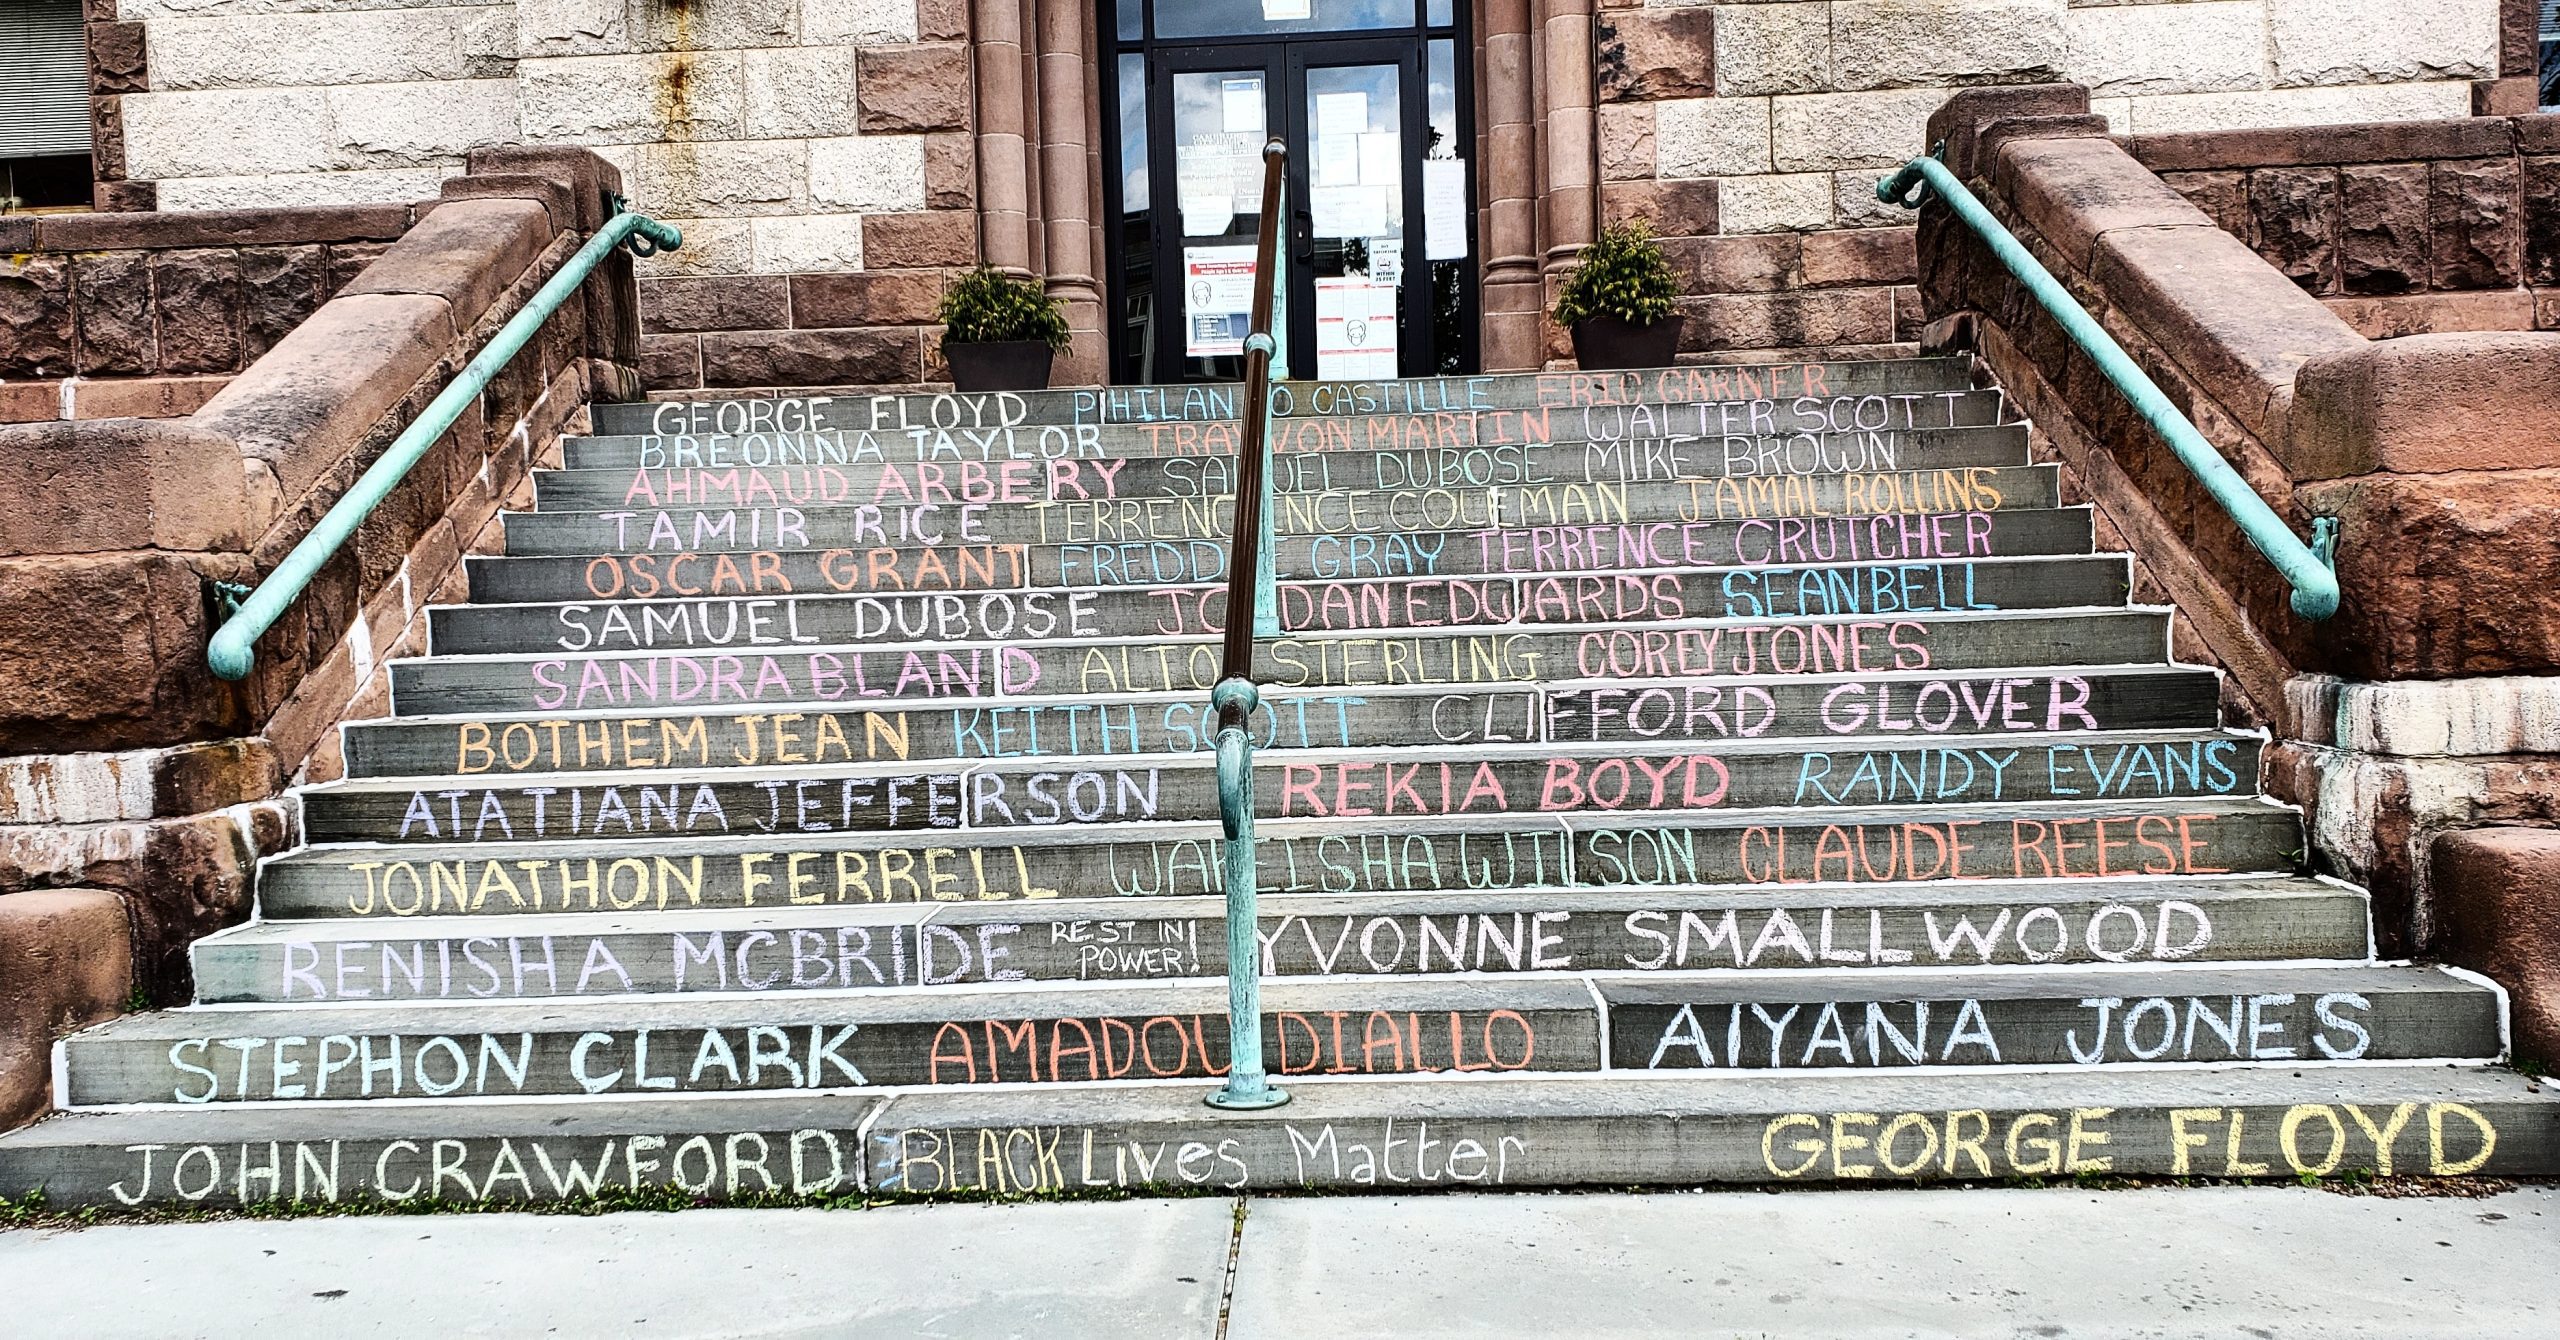 CAMBRIDGE
CITY HALL
NO SMOKING
WITHIN
25 FEET
GEORGE FLOYD PHILANDO CASTILLE ERIC GARNER
BREONNA TAYLOR TRAYVON MARTIN WALTER SCOTT
AHMAUD ARBERY SAMUEL DUBOSE MIKE BROWN
TAMIR RICE TERRENCE COLEMAN JAMAL ROLLINS
OSCAR GRANT FREDDIE GRAY TERRENCE CRUTCHER
SAMUEL DUBOSE JORDAN EDWARDS SEAN BELL
SANDRA BLAND ALTON STERLING COREY JONES
BOTHEM JEAN KEITH SCOTT CLIFFORD GLOVER
ATATIANA JEFFERSON REKIA BOYD RANDY EVANS
JONATHON FERRELL WAKEISHA WILSON CLAUDE REESE
RENISHA MCBRIDE REST IN POWER! YVONNE SMALLWOOD
STEPHON CLARK AMADOU DIALLO AIYANA JONES
JOHN CRAWFORD BLACK Lives Matter GEORGE FLOYD